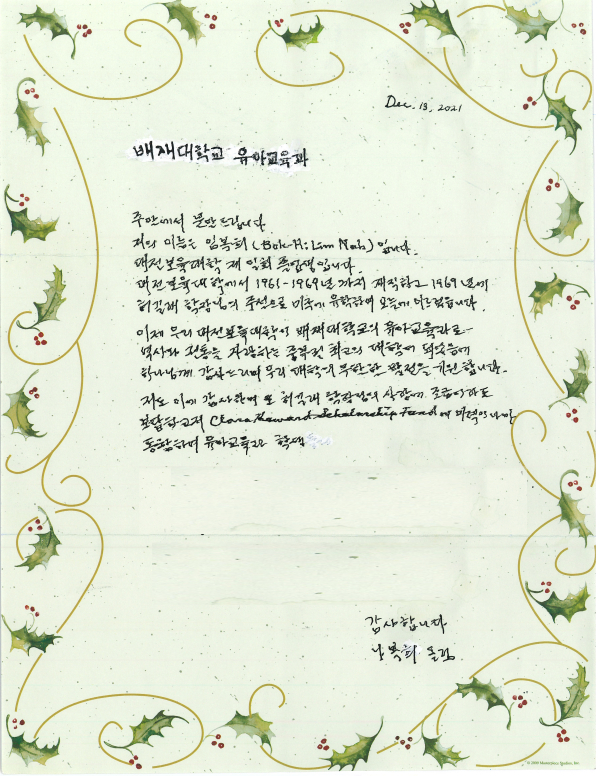 Dec. 13, 2021
배재대학교 유아교육과
주안에서 문안드립니다.
저의 이름은 임복희 (Bok-Hi Lim Nah) 입니다.
대전보육대학 제 일회 졸업생입니다.
대전보육대학에서 1965-1969년 까지 재직하고 1969년에
허길래 학장님의 주선으로 미국에 유학하여 오늘에 이르렀습니다.
이제 우리 대전보육대학이 배재대학교의 유아교육과로
역사와 전통을 자랑하는 중부권 최고의 대학이 되었음에
하나님께 감사드리며 우리 대학의 무한한 발전을 기원합니다.
저도 이에 감사하며 또 허길래 학장님의 사랑에 조금이라도
보답하고저 Clara Howard Scholarship Fund에 미력이나마
동참하며 유아교육과 학생
감사합니다
나복희 올림